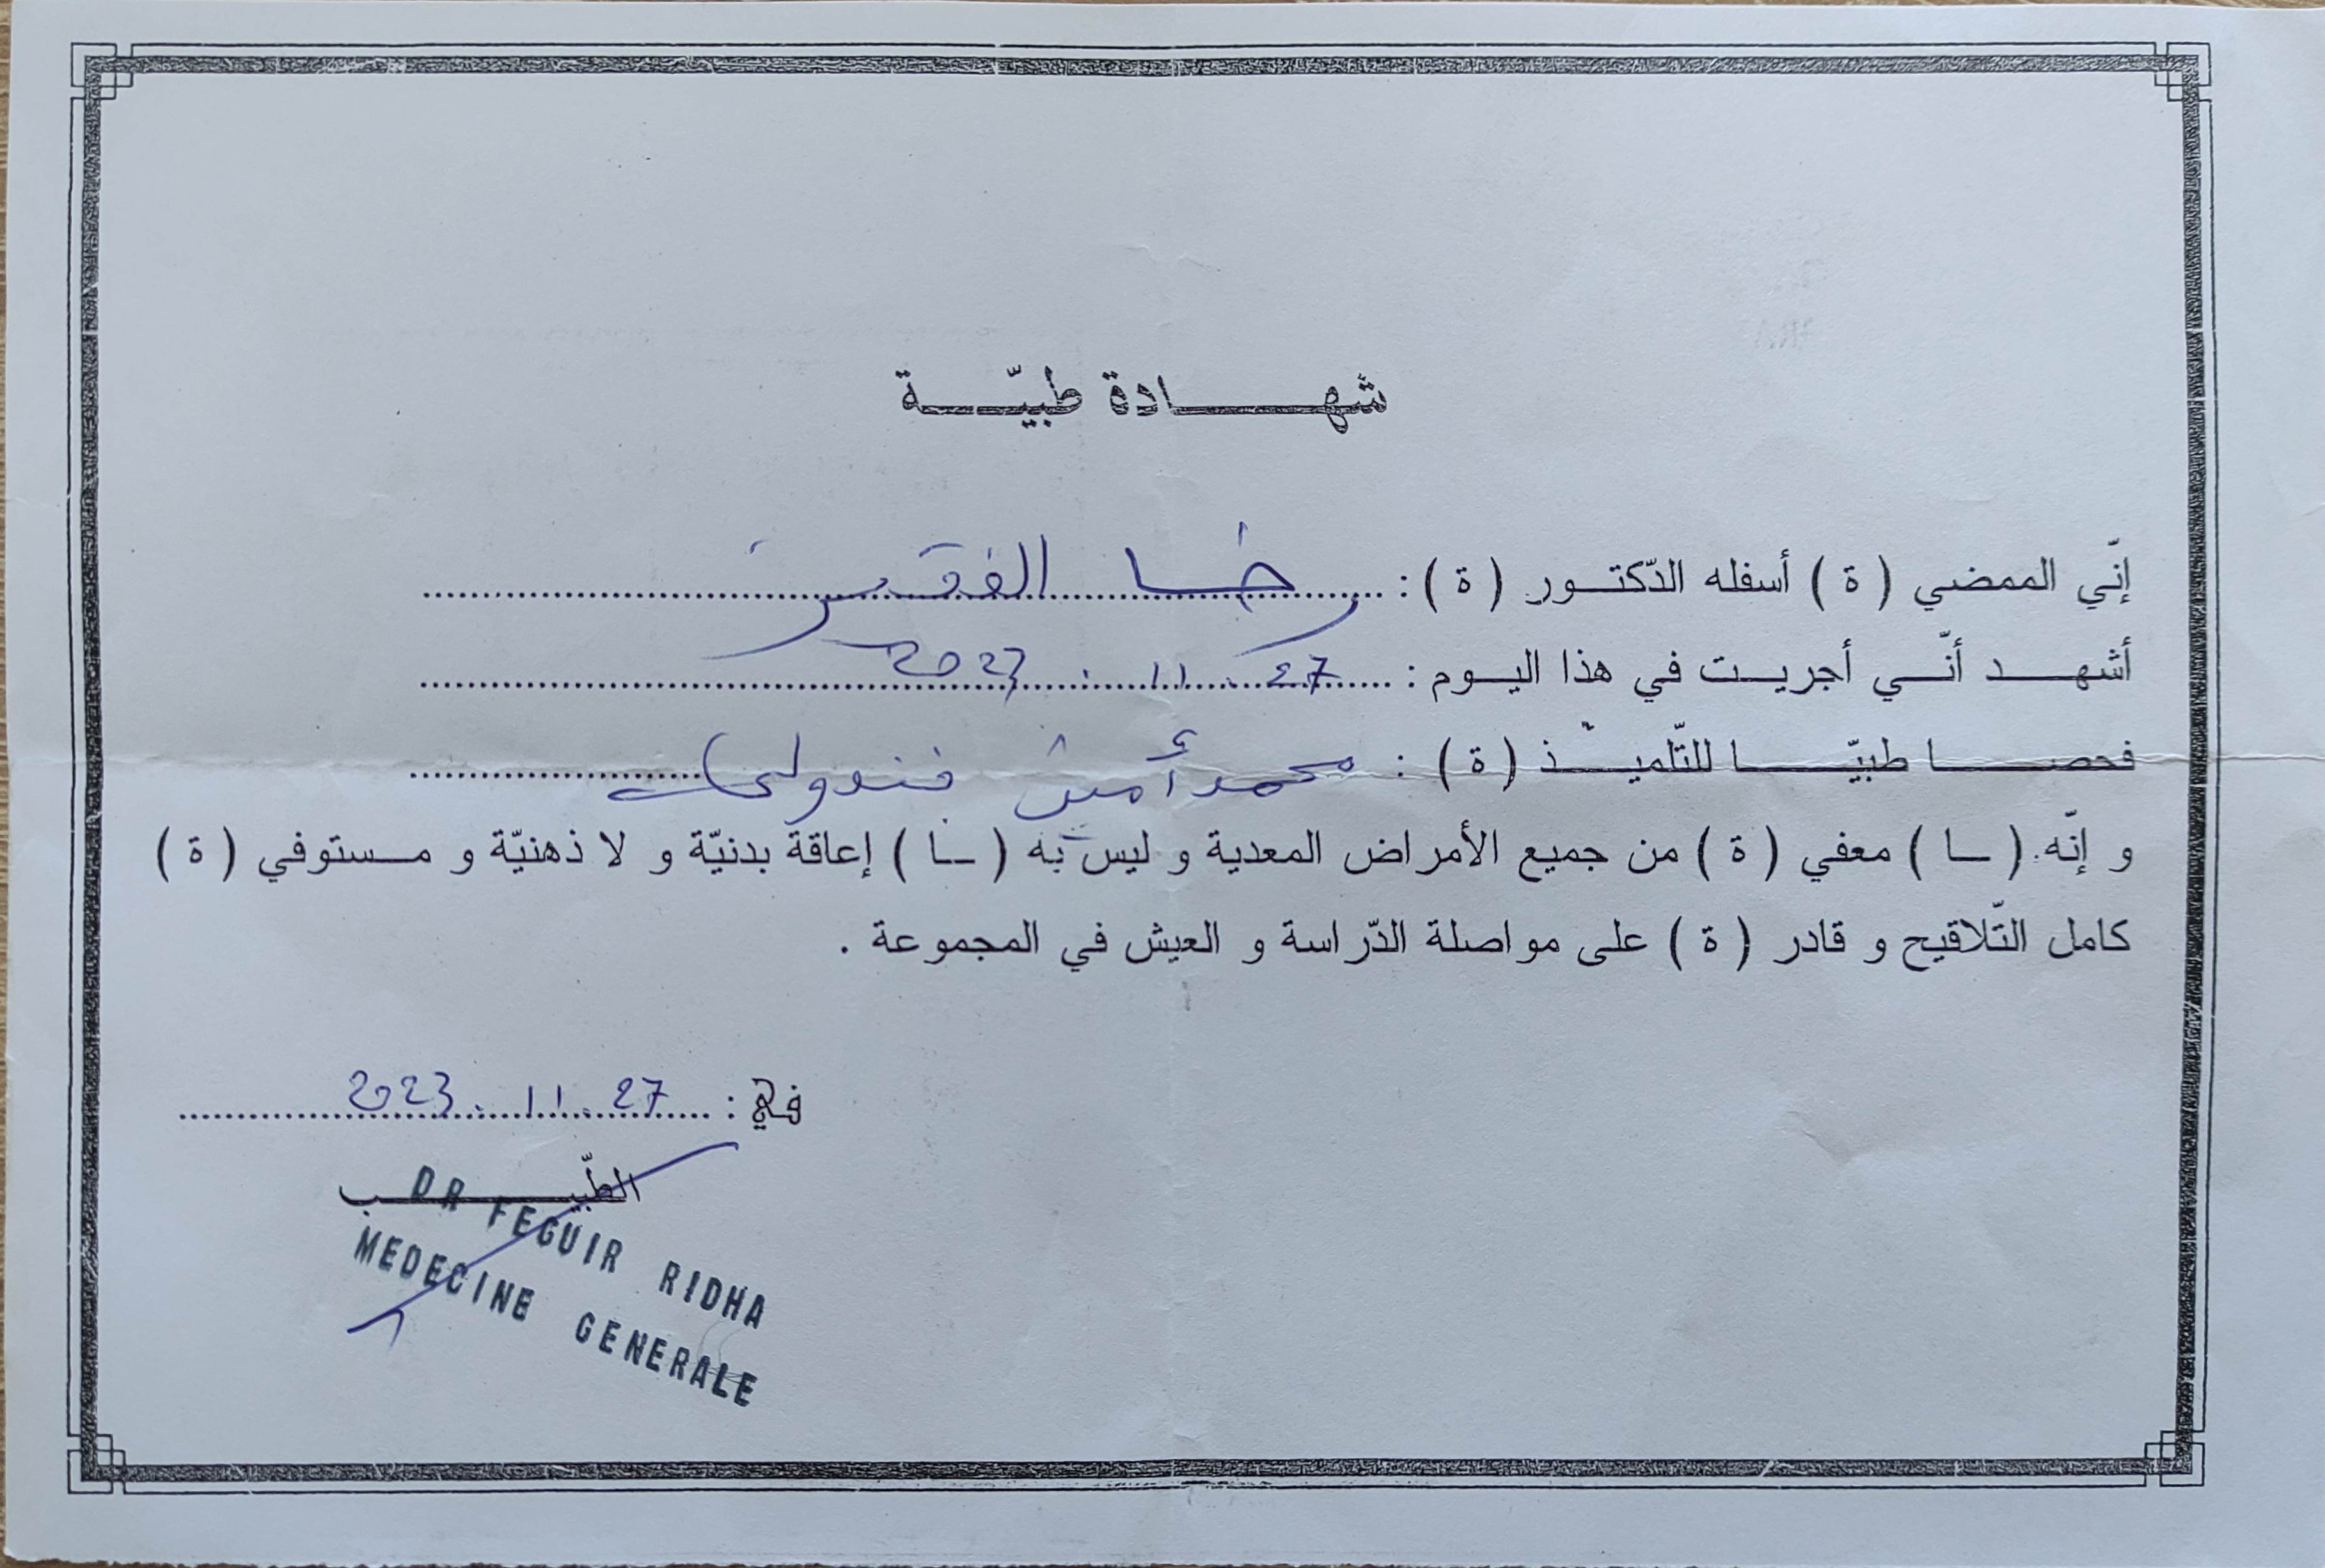 شهادة طبيّة
إنّي الممضي ( ة ) أسفله الدّكتور ( ة ) : رضا الفقير
أشهد أنّي أجريت في هذا اليوم : 27 . 11 . 2023
فحصا طبيّا للتّلميذ ( ة ) : محمد أمين
و إنّه ( ـا ) معفي ( ة ) من جميع الأمراض المعدية و ليس به ( ـا ) إعاقة بدنيّة و لا ذهنيّة و مستوفي ( ة )
كامل التّلاقيح و قادر ( ة ) على مواصلة الدّراسة و العيش في المجموعة .
في : 27 . 11 . 2023
الطّبيب
DR FEGUIR RIDHA
MEDECINE GENERALE